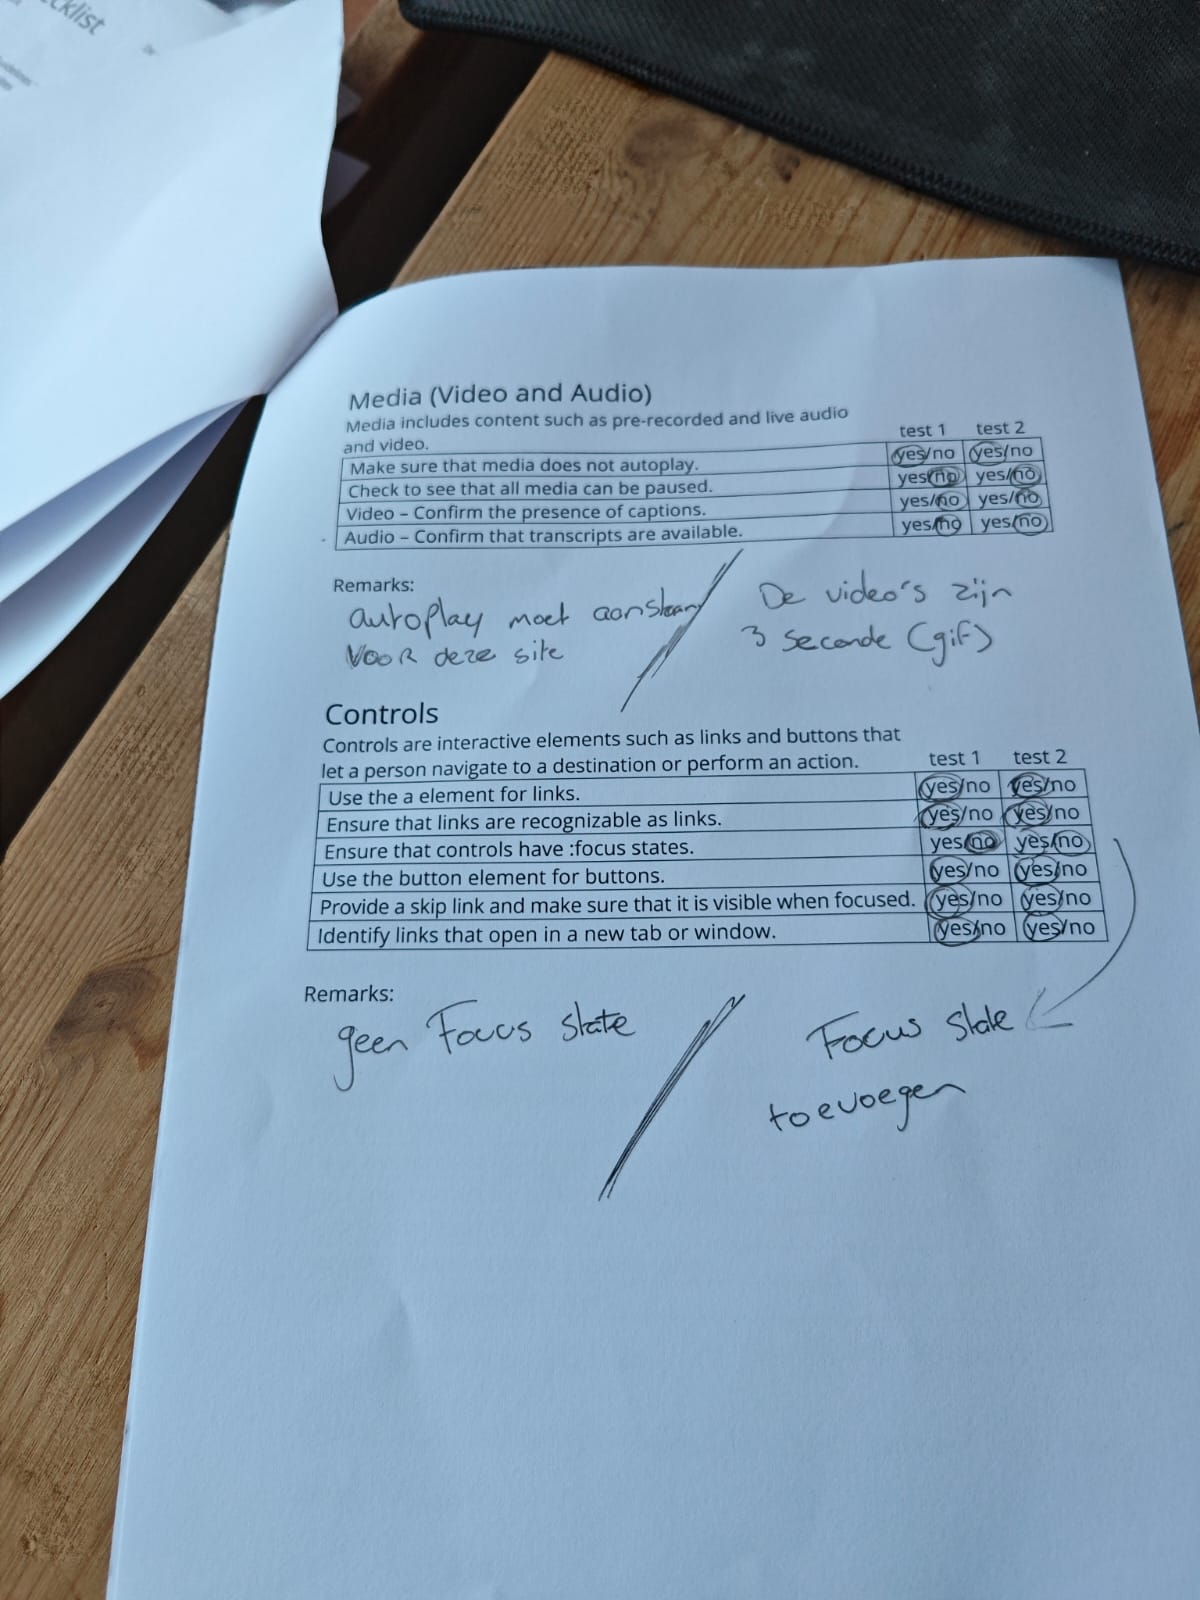 cklist
Media (Video and Audio)
Media includes content such as pre-recorded and live audio
and video. test 1 test 2
Make sure that media does not autoplay. yes/no yes/no
Check to see that all media can be paused. yes/no yes/no
Video – Confirm the presence of captions. yes/no yes/no
Audio – Confirm that transcripts are available. yes/no yes/no
Remarks:
autoplay moet aanstaan
voor deze site
De video's zijn
3 seconde (gif)
Controls
Controls are interactive elements such as links and buttons that
let a person navigate to a destination or perform an action. test 1 test 2
Use the a element for links. yes/no yes/no
Ensure that links are recognizable as links. yes/no yes/no
Ensure that controls have :focus states. yes/no yes/no
Use the button element for buttons. yes/no yes/no
Provide a skip link and make sure that it is visible when focused. yes/no yes/no
Identify links that open in a new tab or window. yes/no yes/no
Remarks:
geen Focus state
Focus state
toevoegen